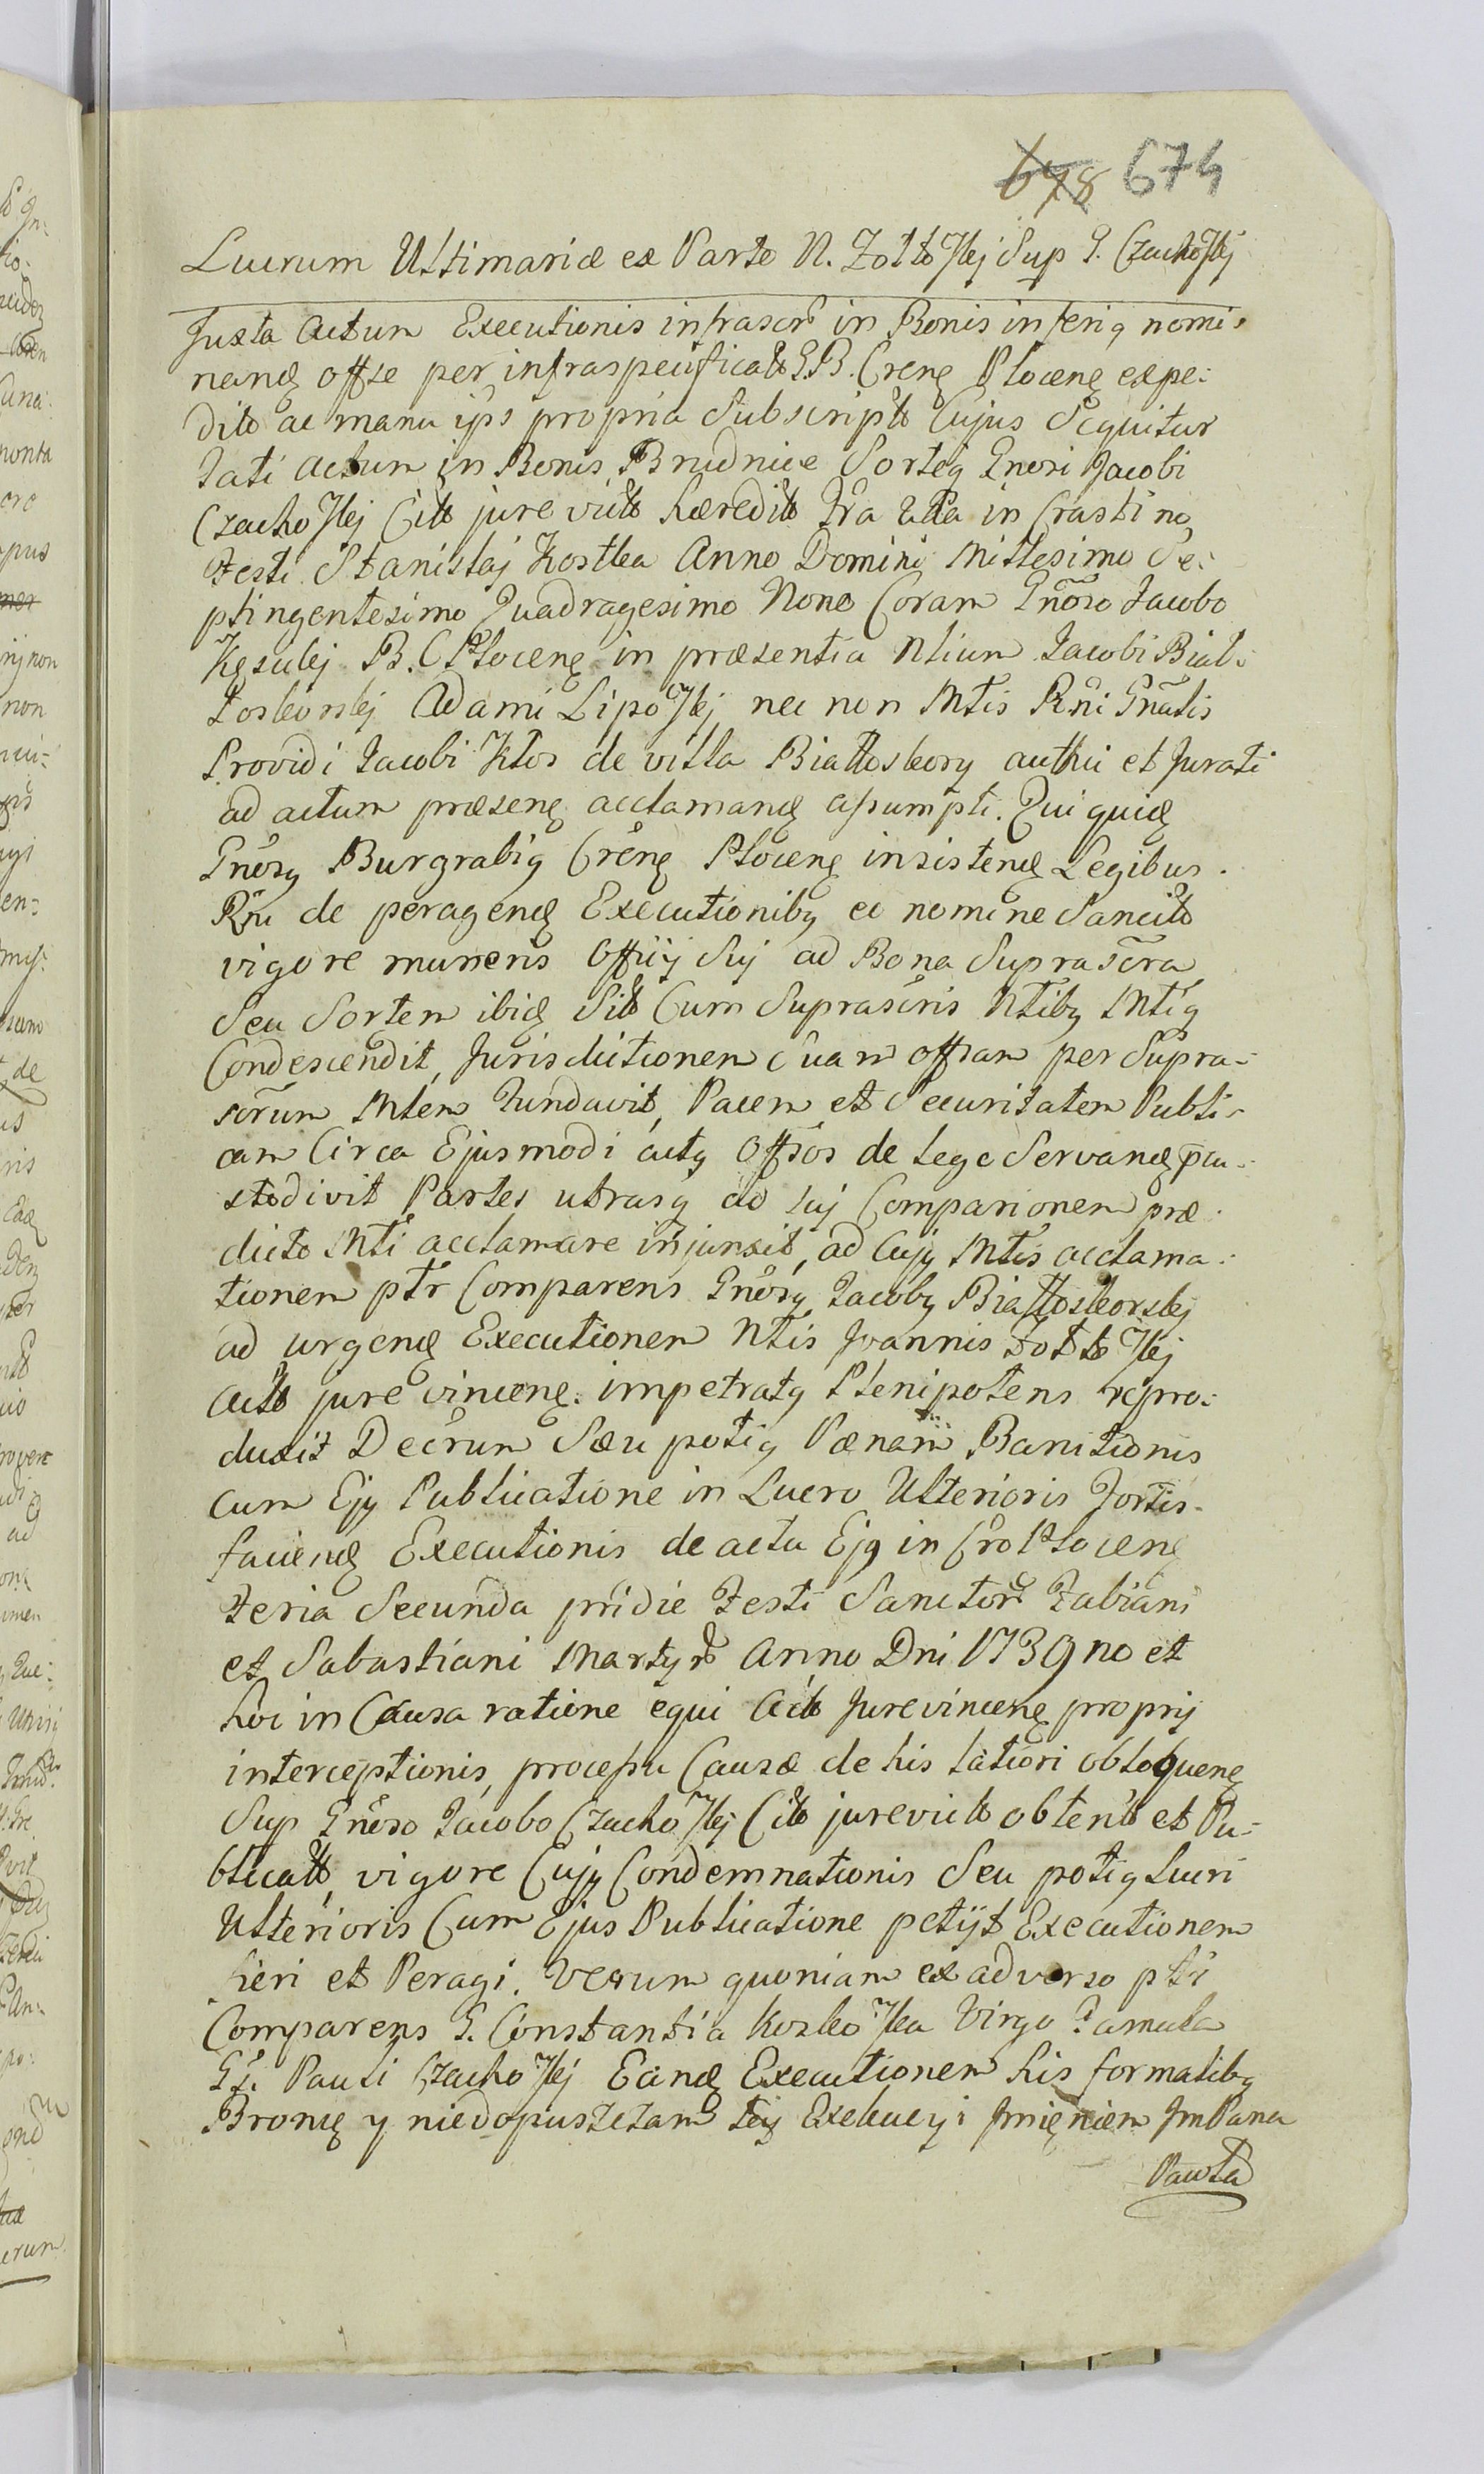 678 674
Lucrum Ultimariæ ex Parte N. Zołtoskij Sup G. Czachoskij
Juxta Actum Executionis infrascr in Bonis inferiq nomi-
nand offse per infraspecificato G. B. Crens Plocens expe:
dito ac manu ips propria Subscripto Cujus Sequitur
Tati Actum in Bonis Brudnice Sorteq Gnosi Jacobi
Czachoskij Citto jure victo hæredit Fra in Crastino
Festi Stanislaj Kostka Anno Domini Millesimo Se:
ptingentesimo Quadragesimo Nono Coram Gnoso Jacobo
B. C. Plocens in præsentia Nlium Jacobi Biał:
łoskorskij Adami Liposkij nec non Mtis Rni Gnalis
Providi Jacobi Kłos de villa Białłoskory authci et Jurati
ad actum præsens acclamand assumpti. Qui quid
Gnosq Burgrabiq Crens Plocens insistend Legibus.
Rni de peragend Executionibq eo nomine Sancito
vigore muneris Officij Sij ad Bona Suprascra
Seu Sortem ibid Sito Cum Suprascris Ntibq Mtiq
Condescendit, Jurisdictionem Suam offsam per Supra-
scrum Mtem Fundavit, Pacem et Securitatem Publi-
cam Circa Ejusmodi actq Offsos de lege Servand pcu-
stodivit Partes utrasq ad sui Comparionem præ:
dicto Mti acclamare injunxit, ad Cujq Mtis acclama:
tionem ptr Comparens Gnosq Jacobq Białłoskorskij
ad urgend Executionem Ntis Joannis Zołtoskij
Acto jure vincens impetratq Plenipotens repro:
duxit Decrum Sæu potiq Pænam Banitionis
Cum Ejq Publicatione in Lucro Ulterioris Fortis-
faciend Executionis de actu Ejq in Cro Plocens
Feria Secunda pridie Festi Sanctor Fabiani
et Sabastiani Martyr Anno Dni 1739no et
hoc in Causa ratione equi Acto Jurevincens proprij
interceptionis, processu Causæ de his latiori obloquens
Sup Gnoso Jacobo Czachoskij Citto jurevicto obtento et Pu-
blicato, vigore Cujq Condemnationis Seu potiq Lucri
Ulterioris Cum Ejus Publicatione petijt Executionem
fieri et Peragi. Verum quoniam ex adverso ptr
Comparens G. Constantia Kozkoska Virgo Famula
Gi. Pauli Czachoskij Eand Executionem his formalibq
Bronię y niedopuszczam tey Exekucyi Jmieniem JmPana
Pawła